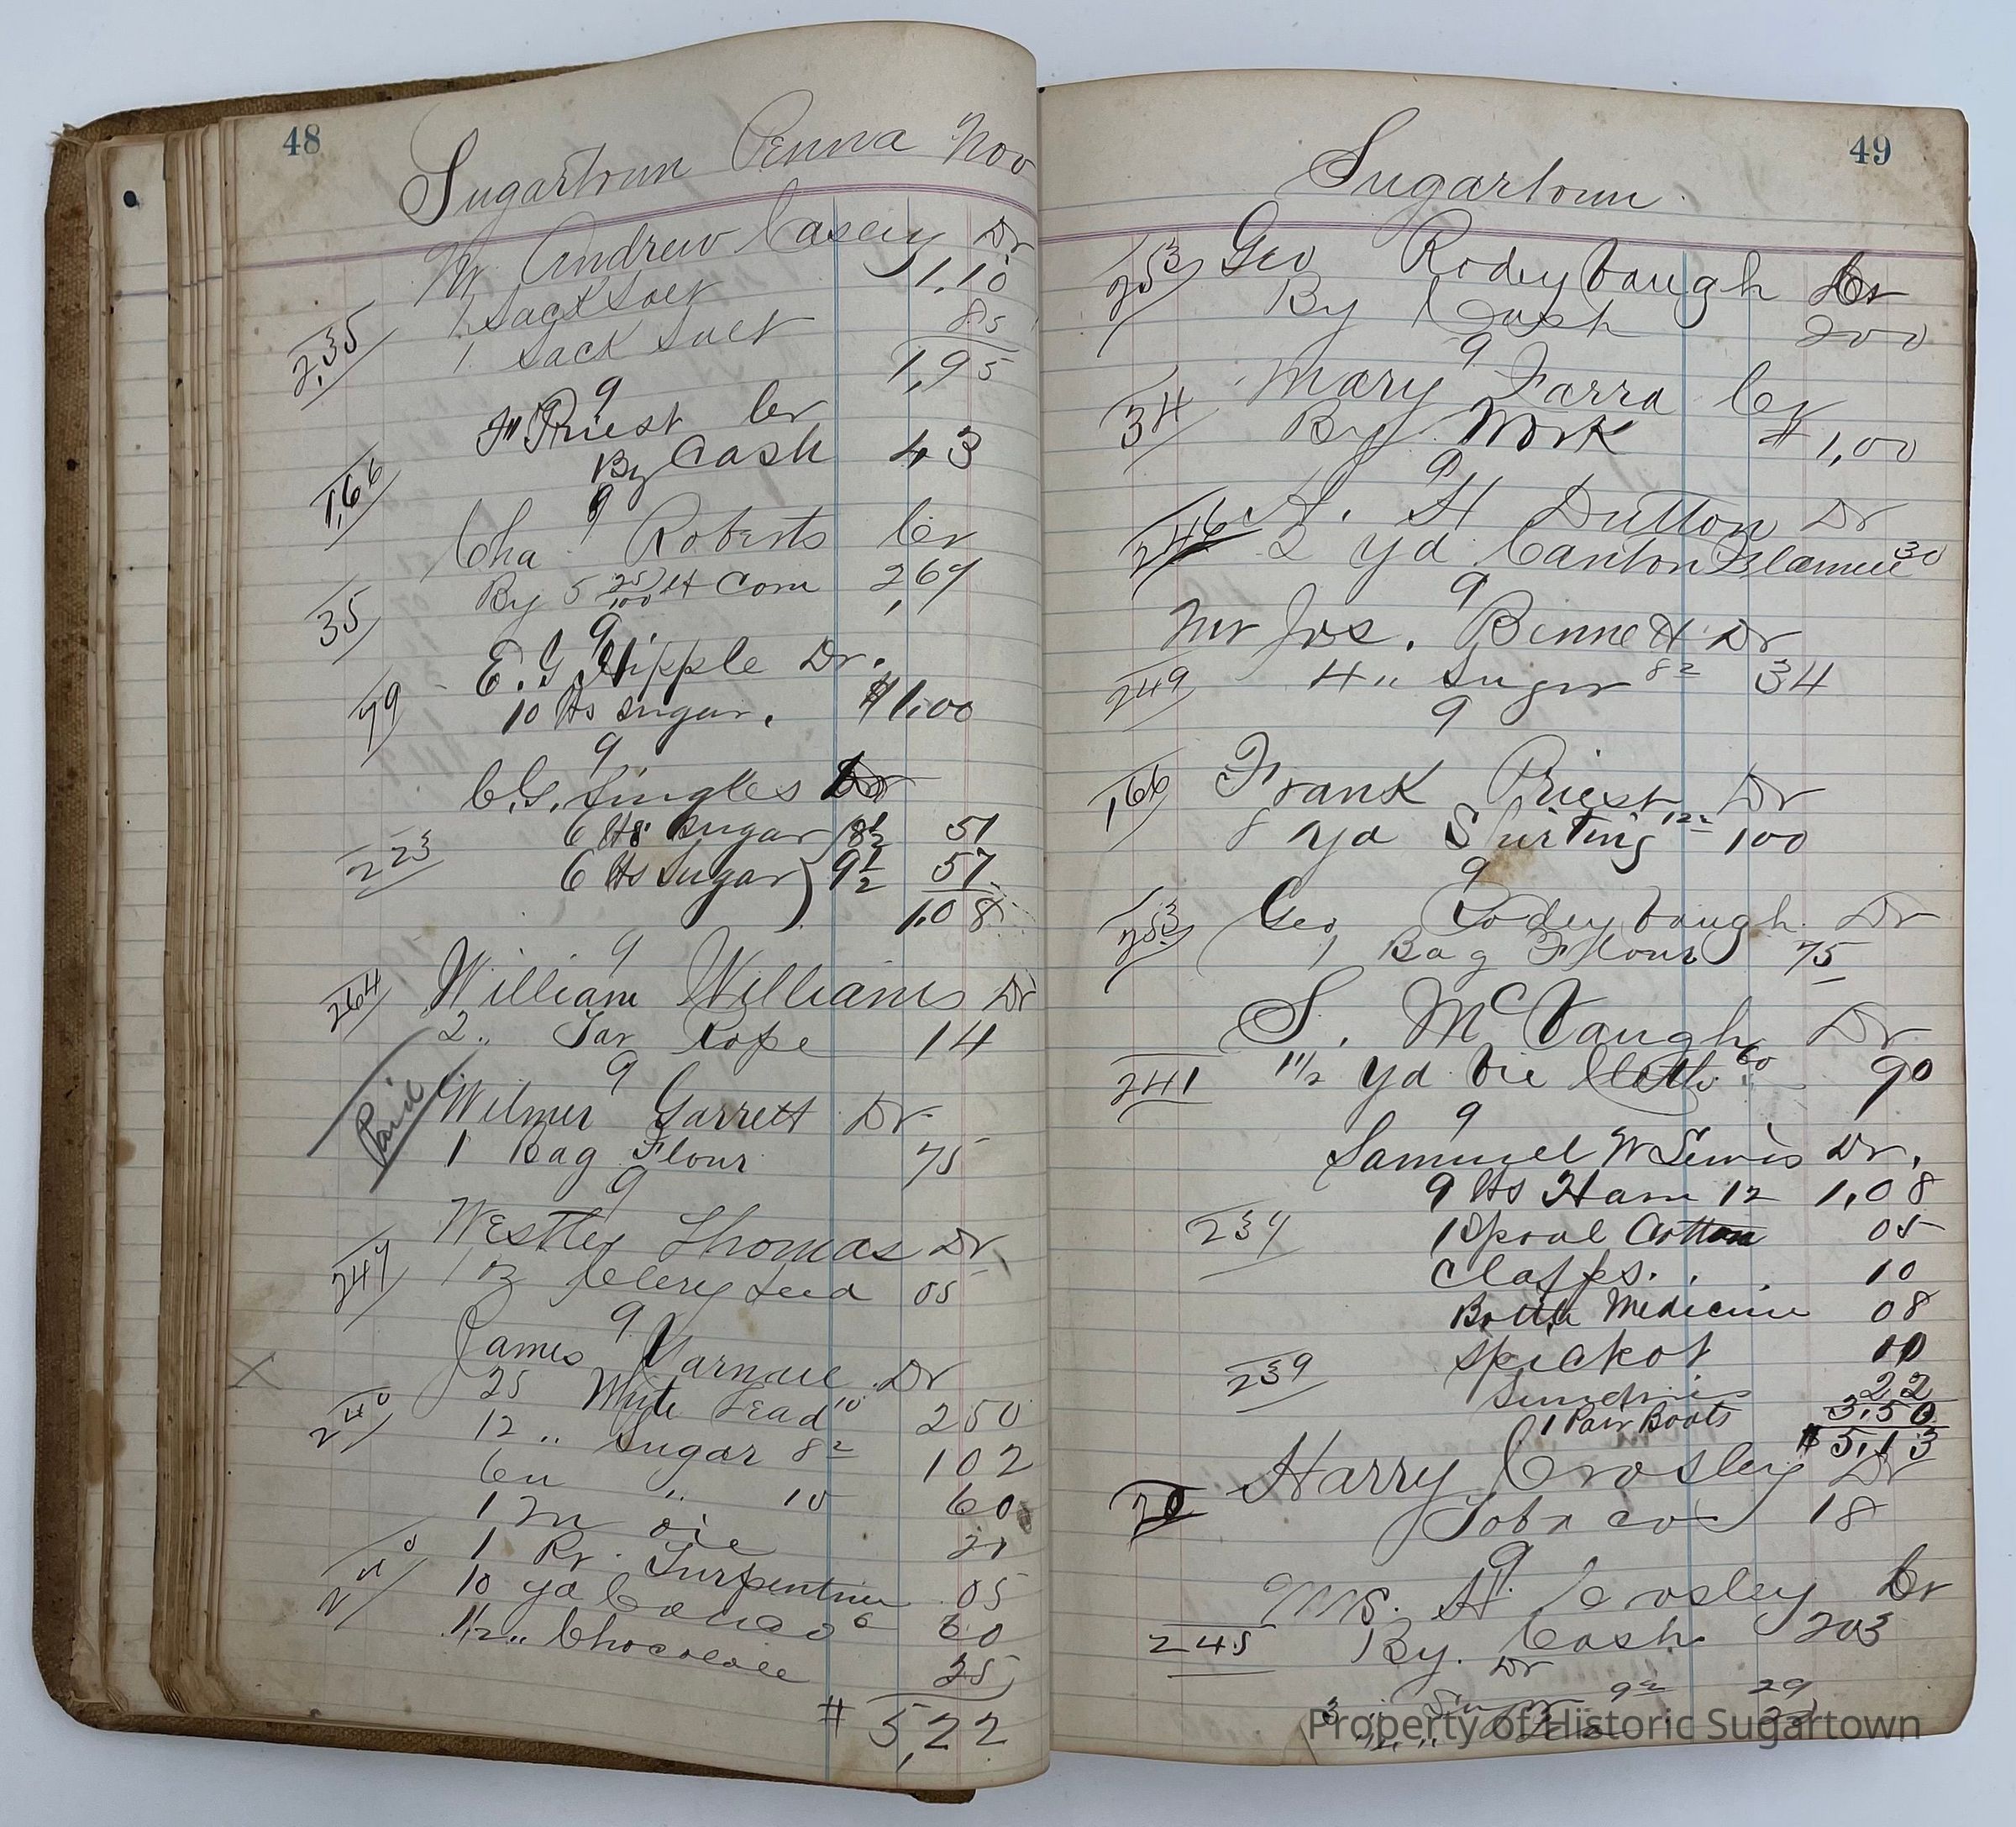 48
Sugartown Penna Nov
Mr Andrew Casey Dr
1 Sack Salt 1.10
235
1 Sack Salt 85
1,95
9
F Priest Cr
166
By Cash 43
9
Cha Roberts Cr
35
By 5 25/100 Corn 2,69
9
E. G. Hipple Dr.
79
10 lbs sugar. $1.00
9
C.G. Lingles Dr
6 lbs sugar 8 1/2 51
223
6 lbs sugar 9 1/2 57
1.08
9
264
William Williams Dr
2 " Tar Rope 14
9
Paid
Wilmer Garrett Dr
1 Bag Flour 75
9
Westley Thomas Dr
247
Celery Seed 05
9
James Yarnall Dr
25 White Lead 10 250
240
12 " Sugar 8 2 102
6 " " 10 60
1 oil
1 Turpentine 05
10 yd Calico 6 60
1 1/2 " Chocolate 25
$ 5,22
49
Sugartown
253
Geo Rodeybaugh Cr
By Cash 200
9
Mary Farra Cr
34
By Work $1,00
9
S. H Dutton Dr
246
2 yd Canton Flannel 30
9
Mr Jos. Binnett Dr
249
4 " Sugar 8 2 34
9
166
Frank Priest Dr
8 yd Shirting 12 2 100
9
253
Geo Rodeybaugh Dr
1 Bag Flour 75
S. McVaugh Dr
241
1 1/2 yd Oil Cloth 60 90
9
Samuel W Lewis Dr.
9 lbs Ham 12 1,08
239
1 Spool Cotton 05
Clasps. . . 10
Bottle Medicine 08
Spickot 10
239
Sundries 22
1 Pair Boots 3.50
$5,13
Harry Crosley Dr
70
Tobaco 18
9
Mrs. H. Crosley Cr
245
By. Cash 203
Dr
3 " Sugar 9 2 29
Property of Historic Sugartown